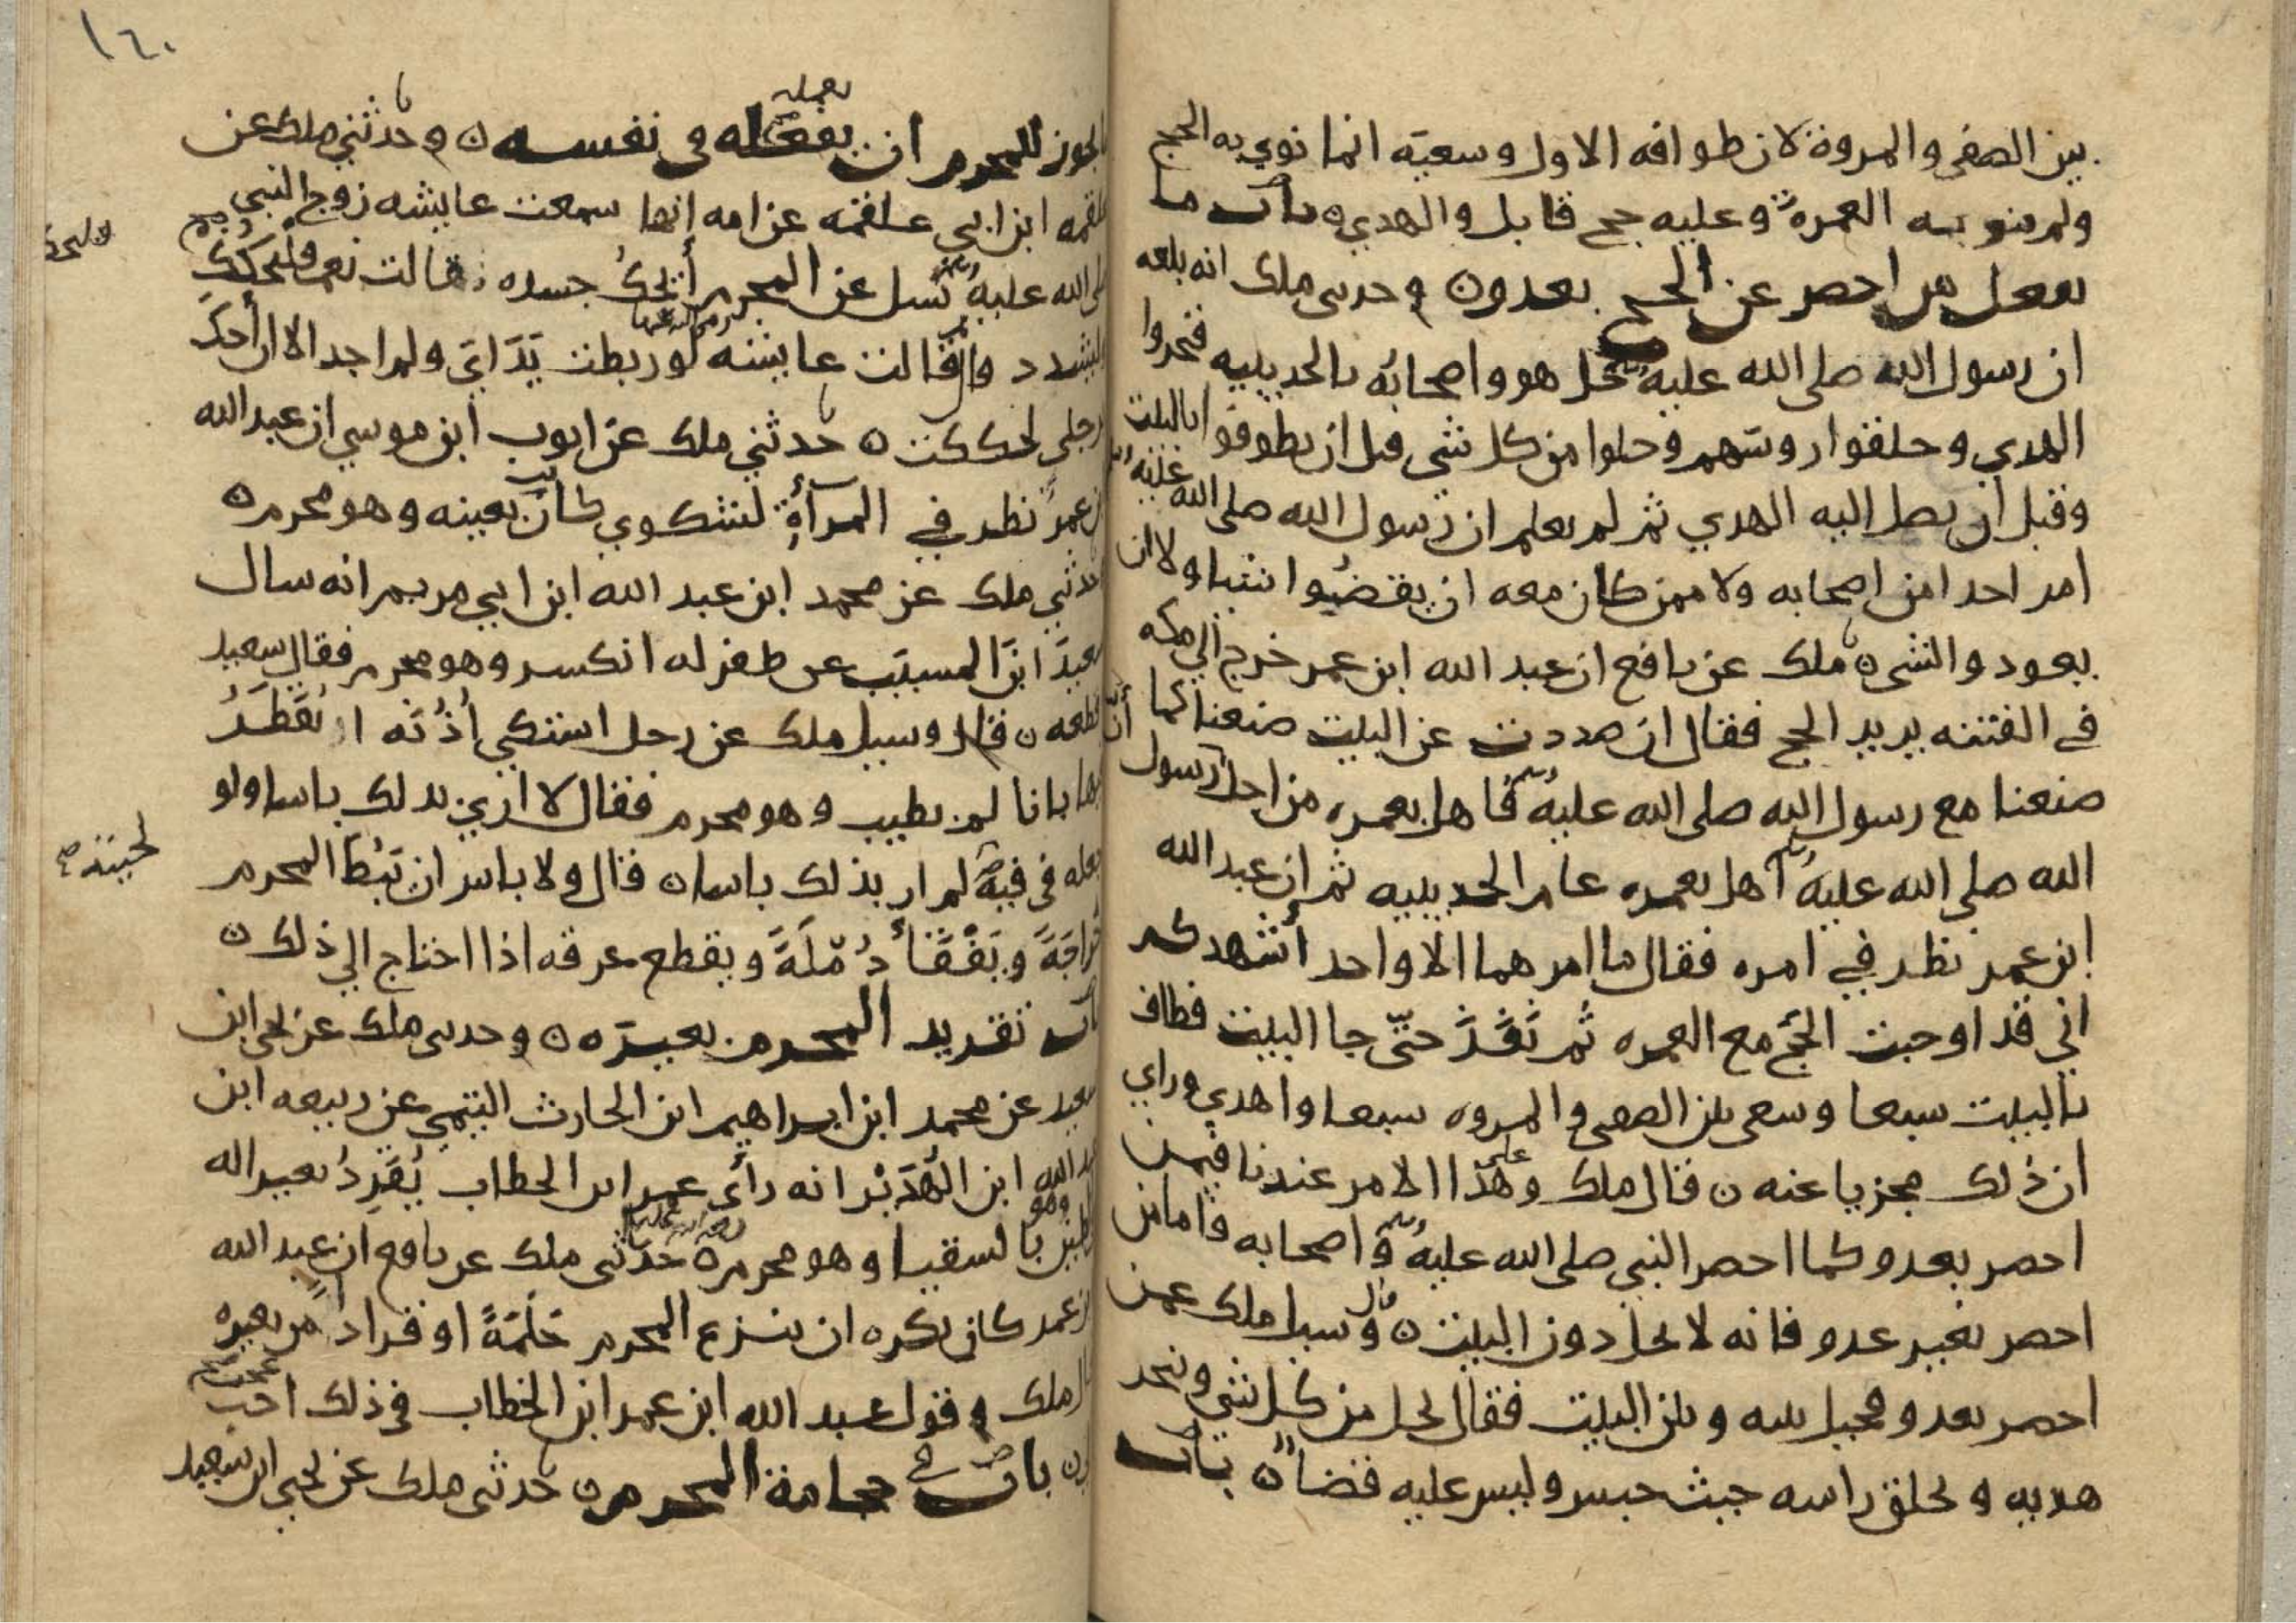 بين الصفى والمروة لان طوافه الاول وسعيه انما نوي به الحج
ولم ينو به العمرة وعليه حج قابل والهدي ٥ باب ما
يفعل من احصر عن الحج بعدو ٥ وحدثني ملك انه بلغه
ان رسول الله صلى الله عليه وسلم حل هو واصحابه بالحديبيه فنحروا
الهدي وحلقوا روسهم وحلوا من كل شي قبل ان يطوفوا بالبيت
وقبل ان يصل اليه الهدي ثم لم يعلم ان رسول الله صلى الله عليه وسلم
امر احدا من اصحابه ولا ممن كان معه ان يقضوا شيا ولا ان
يعودوا لشي ٥ ملك عن نافع ان عبد الله ابن عمر خرج الي مكه
في الفتنه يريد الحج فقال ان صددت عن البيت صنعنا كما
صنعنا مع رسول الله صلى الله عليه وسلم فاهل بعمره من اجل ان رسول
الله صلى الله عليه وسلم اهل بعمره عام الحديبيه ثم ان عبد الله
ابن عمر نظر في امره فقال ما امرهما الا واحد أشهدكم
اني قد اوجبت الحج مع العمره ثم نفذ حتى جا البيت فطاف
بالبيت سبعا وسعى بين الصفى والمروه سبعا واهدي وراي
ان ذلك مجزيا عنه ٥ قال ملك وعلى هذا الامر عندنا فيمن
احصر بعدو كما احصر النبي صلى الله عليه وسلم واصحابه فاما من
احصر بغير عدو فانه لا يحل دون البيت ٥ قال وسيل ملك عمن
احصر بعدو فحيل بينه وبين البيت فقال يحل من كل شي وينحر
هديه ويحلق راسه حيث حبس وليس عليه قضا ٥ باب
١٦٠
يجوز للمحرم ان يفعله في نفسه ٥ وحدثني ملك عن
يفعله
علقمه ابن ابي علقمه عن امه انها سمعت عايشه زوج النبي
صلى الله عليه وسلم تسل عن المحرم أيحك جسده فقالت نعم فليحكك
وليشدد وقالت عايشه لو ربطت يداي ولم اجد الا ان أحك
برجلي لحككت ٥ حدثني ملك عن ايوب ابن موسي ان عبد الله
ابن عمر نظر في المرآة لشكوي كان بعينه وهو محرم ٥
حدثني ملك عن محمد ابن عبد الله ابن ابي مريم انه سال
سعيد ابن المسيب عن ظفر له انكسر وهو محرم فقال سعيد
اقطعه ٥ قال وسيل ملك عن رجل اشتكي أذنه ايقطر
فيها بانا لم يطيب وهو محرم فقال لا اري بذلك باسا ولو
جعله في فيه لم ار بذلك باسا ٥ قال ولا باس ان يبط المحرم
لحيته صح
خراجة ويفقأ دملة ويقطع عرقه اذا احتاج الي ذلك ٥
باب تقريد المحرم بعيره ٥ وحدثني ملك عن يحي ابن
سعيد عن محمد ابن ابراهيم ابن الحارث التيمي عن ربيعه ابن
عبد الله ابن الهدير انه رأى عمر ابن الخطاب يقرد بعيرا له
في طين بالسقيا وهو محرم ٥ حدثني ملك عن نافع ان عبد الله
ابن عمر كان يكره ان ينزع المحرم حلمة او قرادا من بعيره
قال ملك وقول عبد الله ابن عمر ابن الخطاب في ذلك احب
باب في حجامة المحرم ٥ حدثني ملك عن يحي ابن سعيد